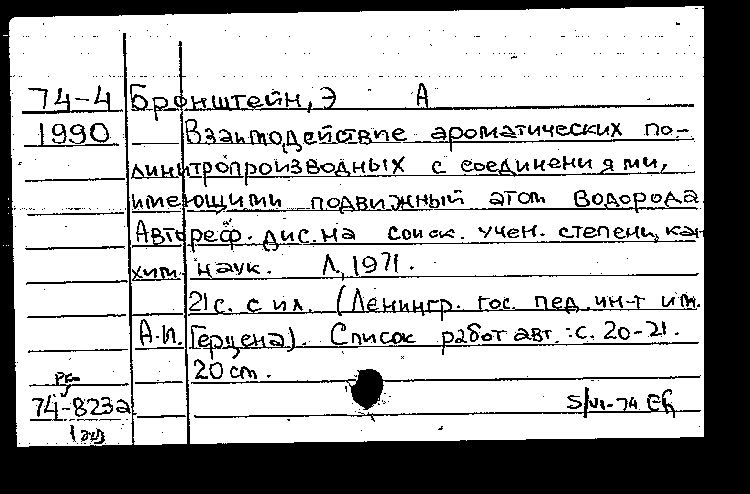 74-4 Бронштейн, Э А
1990 Взаимодействие ароматических по-
линитропроизводных с соединениями,
имеющими подвижный атом водорода
Автореф. дис. на соиск. учен. степени, кан
хим. наук. Л, 1971.
21 с. с ил. (Ленингр. гос. пед. ин-т им.
А.И. Герцена). Список работ авт.: с. 20-21.
20 см.
74-823а 5/VI-74
1 экз